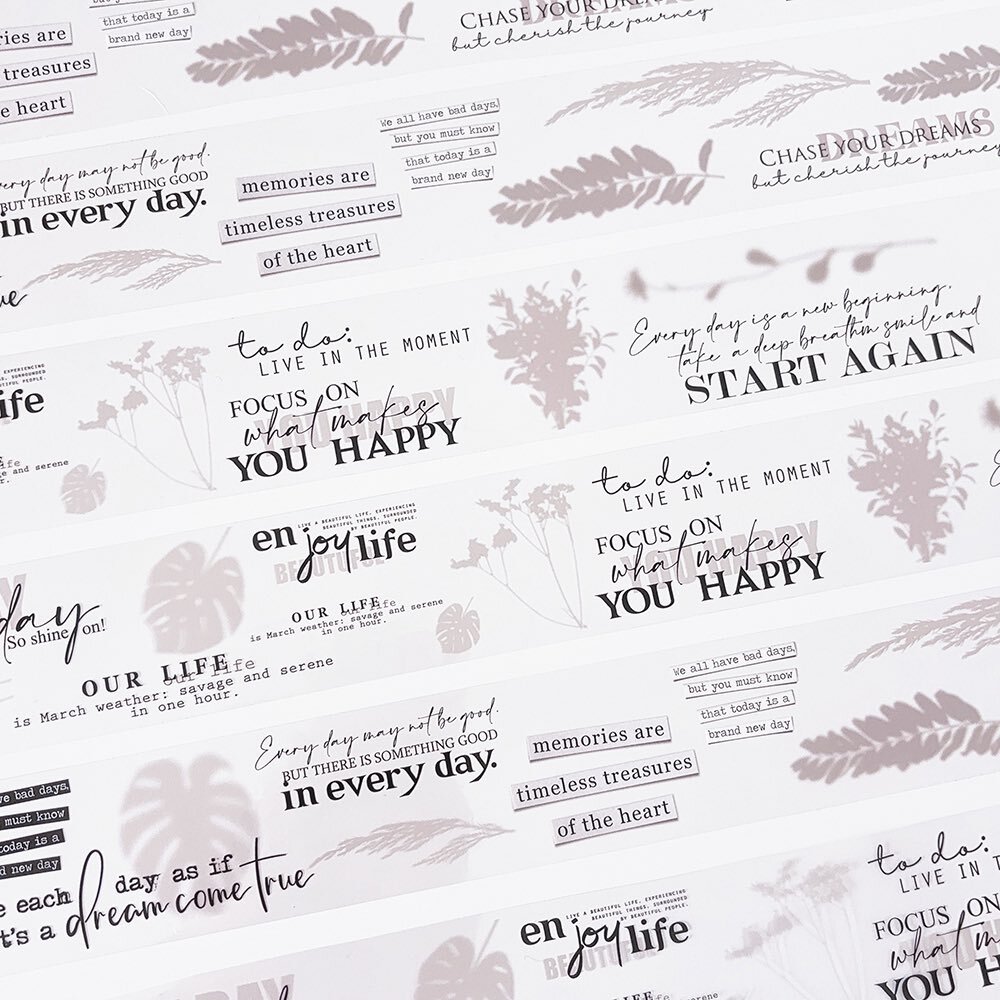 that today is a
brand new day
ries are
treasures
the heart
CHASE YOUR DREAMS
but cherish the journey
We all have bad days,
but you must know
that today is a
brand new day
DREAMS
CHASE YOUR DREAMS
but cherish the journey
every day may not be good.
BUT THERE IS SOMETHING GOOD
in every day.
memories are
timeless treasures
of the heart
ue
to do:
LIVE IN THE MOMENT
FOCUS ON
what makes
YOU HAPPY
YOU HAPPY
Every day is a new beginning,
take a deep breathm smile and
START AGAIN
EXPERIENCING
SURROUNDED
BEAUTIFUL PEOPLE.
life
life
savage and serene
r.
LIVE A BEAUTIFUL LIFE, EXPERIENCING
BEAUTIFUL THINGS, SURROUNDED
BY BEAUTIFUL PEOPLE.
enjoy life
BEAUTIFUL
OUR LIFE
our life
is March weather: savage and serene
in one hour.
to do:
LIVE IN THE MOMENT
FOCUS ON
what makes
YOU HAPPY
YOU HAPPY
day
So shine on!
OUR LIFE
our life
is March weather: savage and serene
in one hour.
We all have bad days,
but you must know
that today is a
brand new day
Every day may not be good.
BUT THERE IS SOMETHING GOOD
in every day.
memories are
timeless treasures
of the heart
ve bad days,
must know
today is a
d new day
e each day as if
t's a dream come true
to do:
LIVE IN T
FOCUS ON
what m
YOU H
LIVE A BEAUTIFUL LIFE, EXPERIENCING
BEAUTIFUL THINGS, SURROUNDED
BY BEAUTIFUL PEOPLE.
enjoy life
BEAUTIFUL
DAY
OUR LIFE